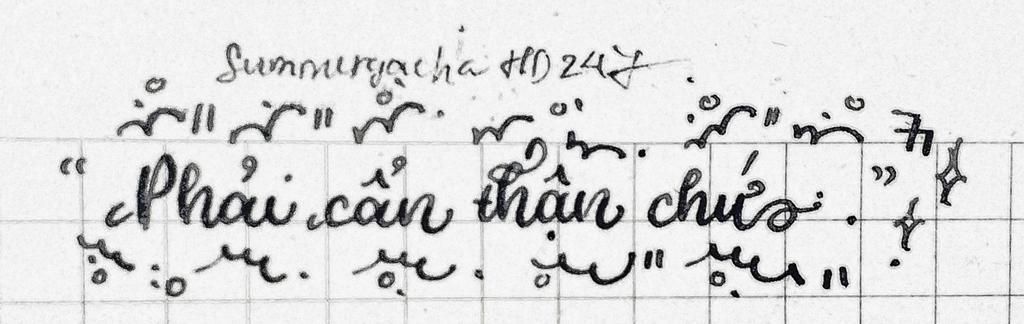 Summergacha HD247
"Phải cẩn thân chứ."